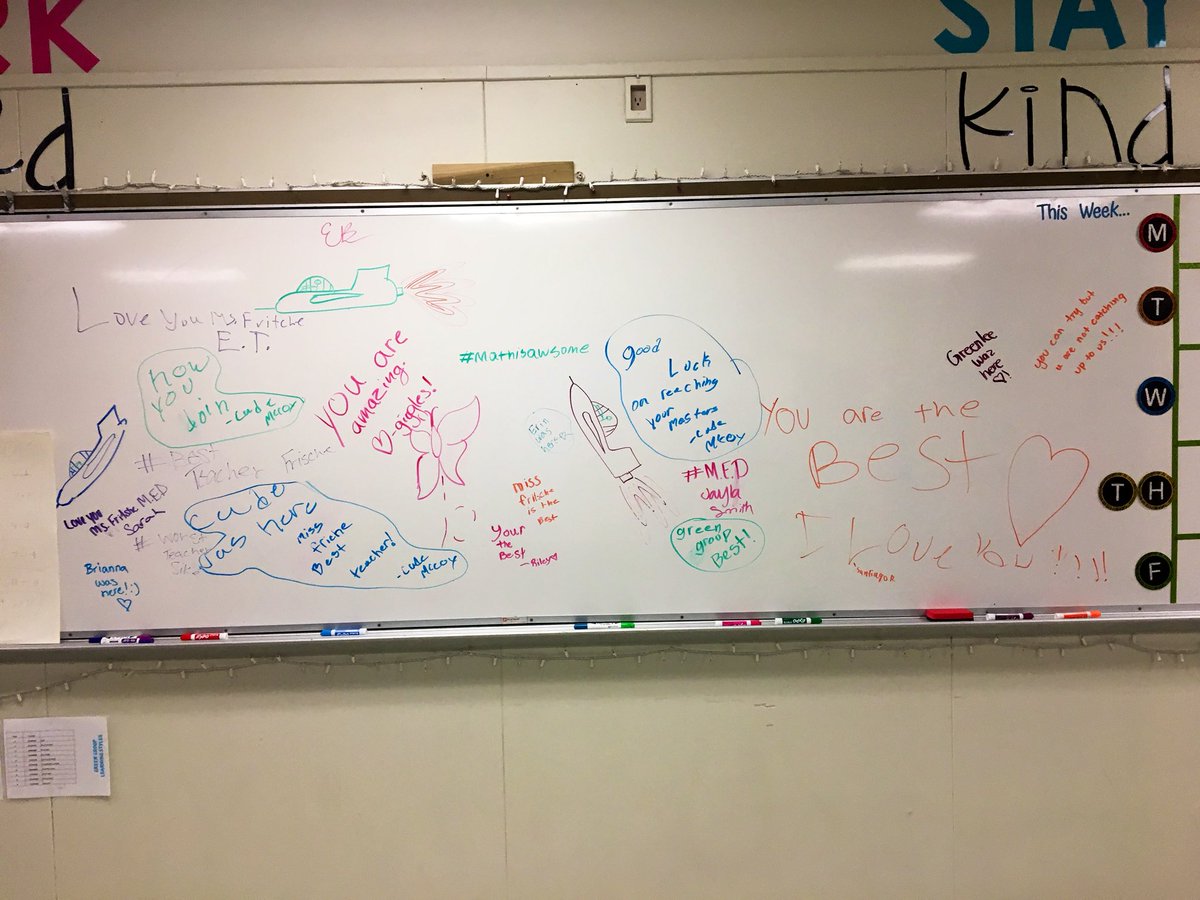 RK
STAY
ed
kind
This Week...
M
T
W
T H
F
ER
Love You Ms. Fritche
E.T.
now
you
Join
-Cade
Mccoy
you are
amazing.
♡-giggles!
#Mathisawsome
good
Luck
on reaching
your
masters
-Cade
Mccoy
Greenlee
was
here
♡!
you can try but
u are not catching
up to us!!!
You are the
Best
I Love You!!!!
santiago R.
# Best
Teacher Frische
Erin
was
here
Love you
Ms. Fritshe M.E.D
Sarah
# worst
Teacher
Cade
was here
miss
friche
Best
teacher!
-Cade
Mccoy
miss
fritsche
is the
Best
Your
the
Best
-Riley♡
#M.E.D
Jayla
Smith
green
group
Best!
Brianna
was
here! :)
♡
EXPO
GREEN GROUP
LEARNING STYLES